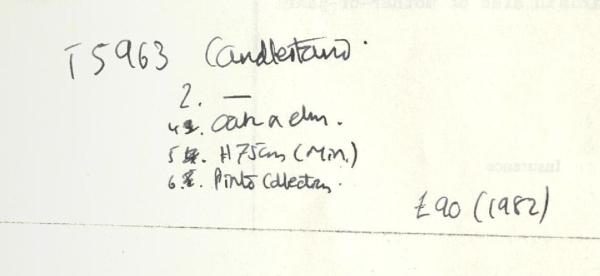 T5963 Candlestand.
2. —
4. Oak & elm.
5. H75cm (Min.)
6. Pinto Collection.
£90 (1982)
Insurance